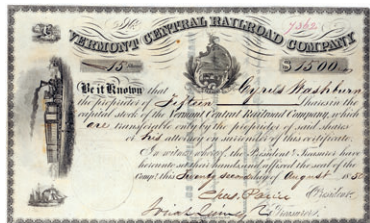 7362
VERMONT CENTRAL RAILROAD COMPANY
15 $1500
Be it Known that Cyrus Washburn
the proprietor of Fifteen Shares in the
capital stock of the Vermont Central Railroad Company, which
are transferable only by the proprietor of said shares
or his attorney on surrender of this certificate
In witness whereof, the President & Treasurer have
hereunto the seal of the
Comp.y this Twenty second day of August
Chas. Paine President.
Treasurer